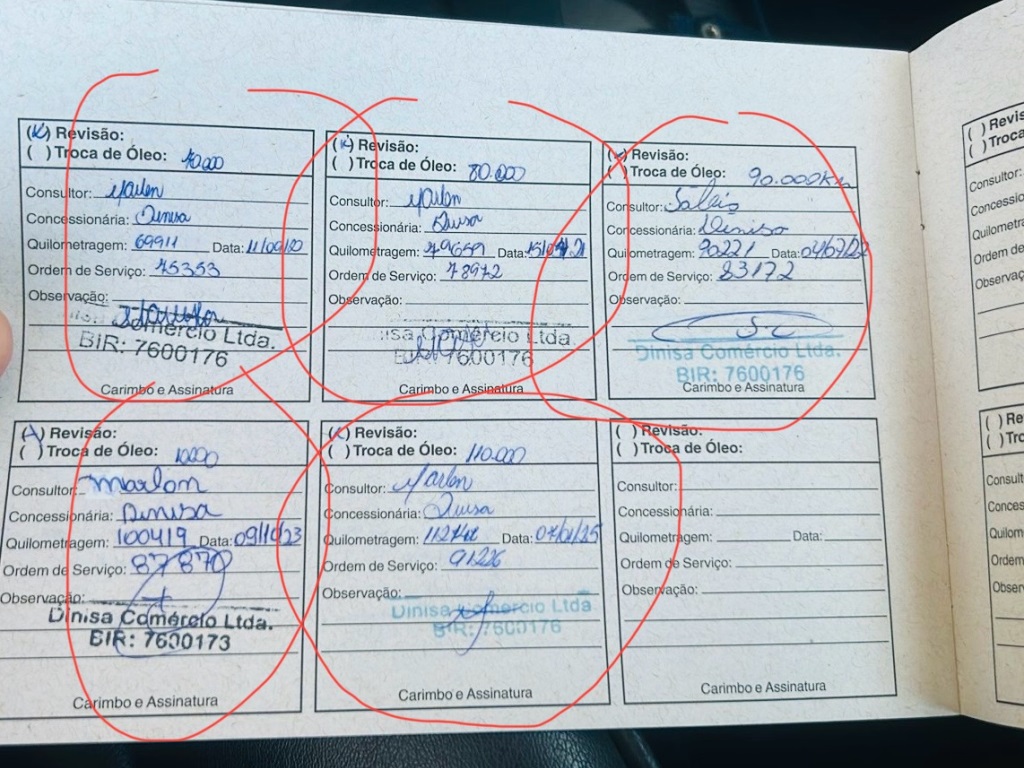 (X) Revisão:
( ) Troca de Óleo: 70.000
Consultor: Marlon
Concessionária: Dinisa
Quilometragem: 69911 Data: 11/09/20
Ordem de Serviço: 75353
Observação:
Comércio Ltda.
BIR: 7600176
Carimbo e Assinatura
(X) Revisão:
( ) Troca de Óleo: 80.000
Consultor: Marlon
Concessionária: Dinisa
Quilometragem: 79659 Data:
Ordem de Serviço: 78972
Observação:
nisa Comércio Ltda.
7600176
Carimbo e Assinatura
(X) Revisão:
( ) Troca de Óleo: 90.000Km
Consultor:
Concessionária: Dinisa
Quilometragem: 90221 Data: 04/07/22
Ordem de Serviço: 83172
Observação:
Dinisa Comércio Ltda.
BIR: 7600176
Carimbo e Assinatura
(X) Revisão:
( ) Troca de Óleo:
Consultor: Marlon
Concessionária: Dinisa
Quilometragem: 100419 Data: 09/10/23
Ordem de Serviço: 87870
Observação:
Dinisa Comércio Ltda.
BIR: 7600173
Carimbo e Assinatura
(X) Revisão:
( ) Troca de Óleo: 110.000
Consultor: Marlon
Concessionária: Dinisa
Quilometragem: Data: 07/01/25
Ordem de Serviço: 91226
Observação:
Dinisa Comercio Ltda
BIR: 7600176
Carimbo e Assinatura
( ) Revisão:
( ) Troca de Óleo:
Consultor:
Concessionária:
Quilometragem: Data:
Ordem de Serviço:
Observação:
Carimbo e Assinatura